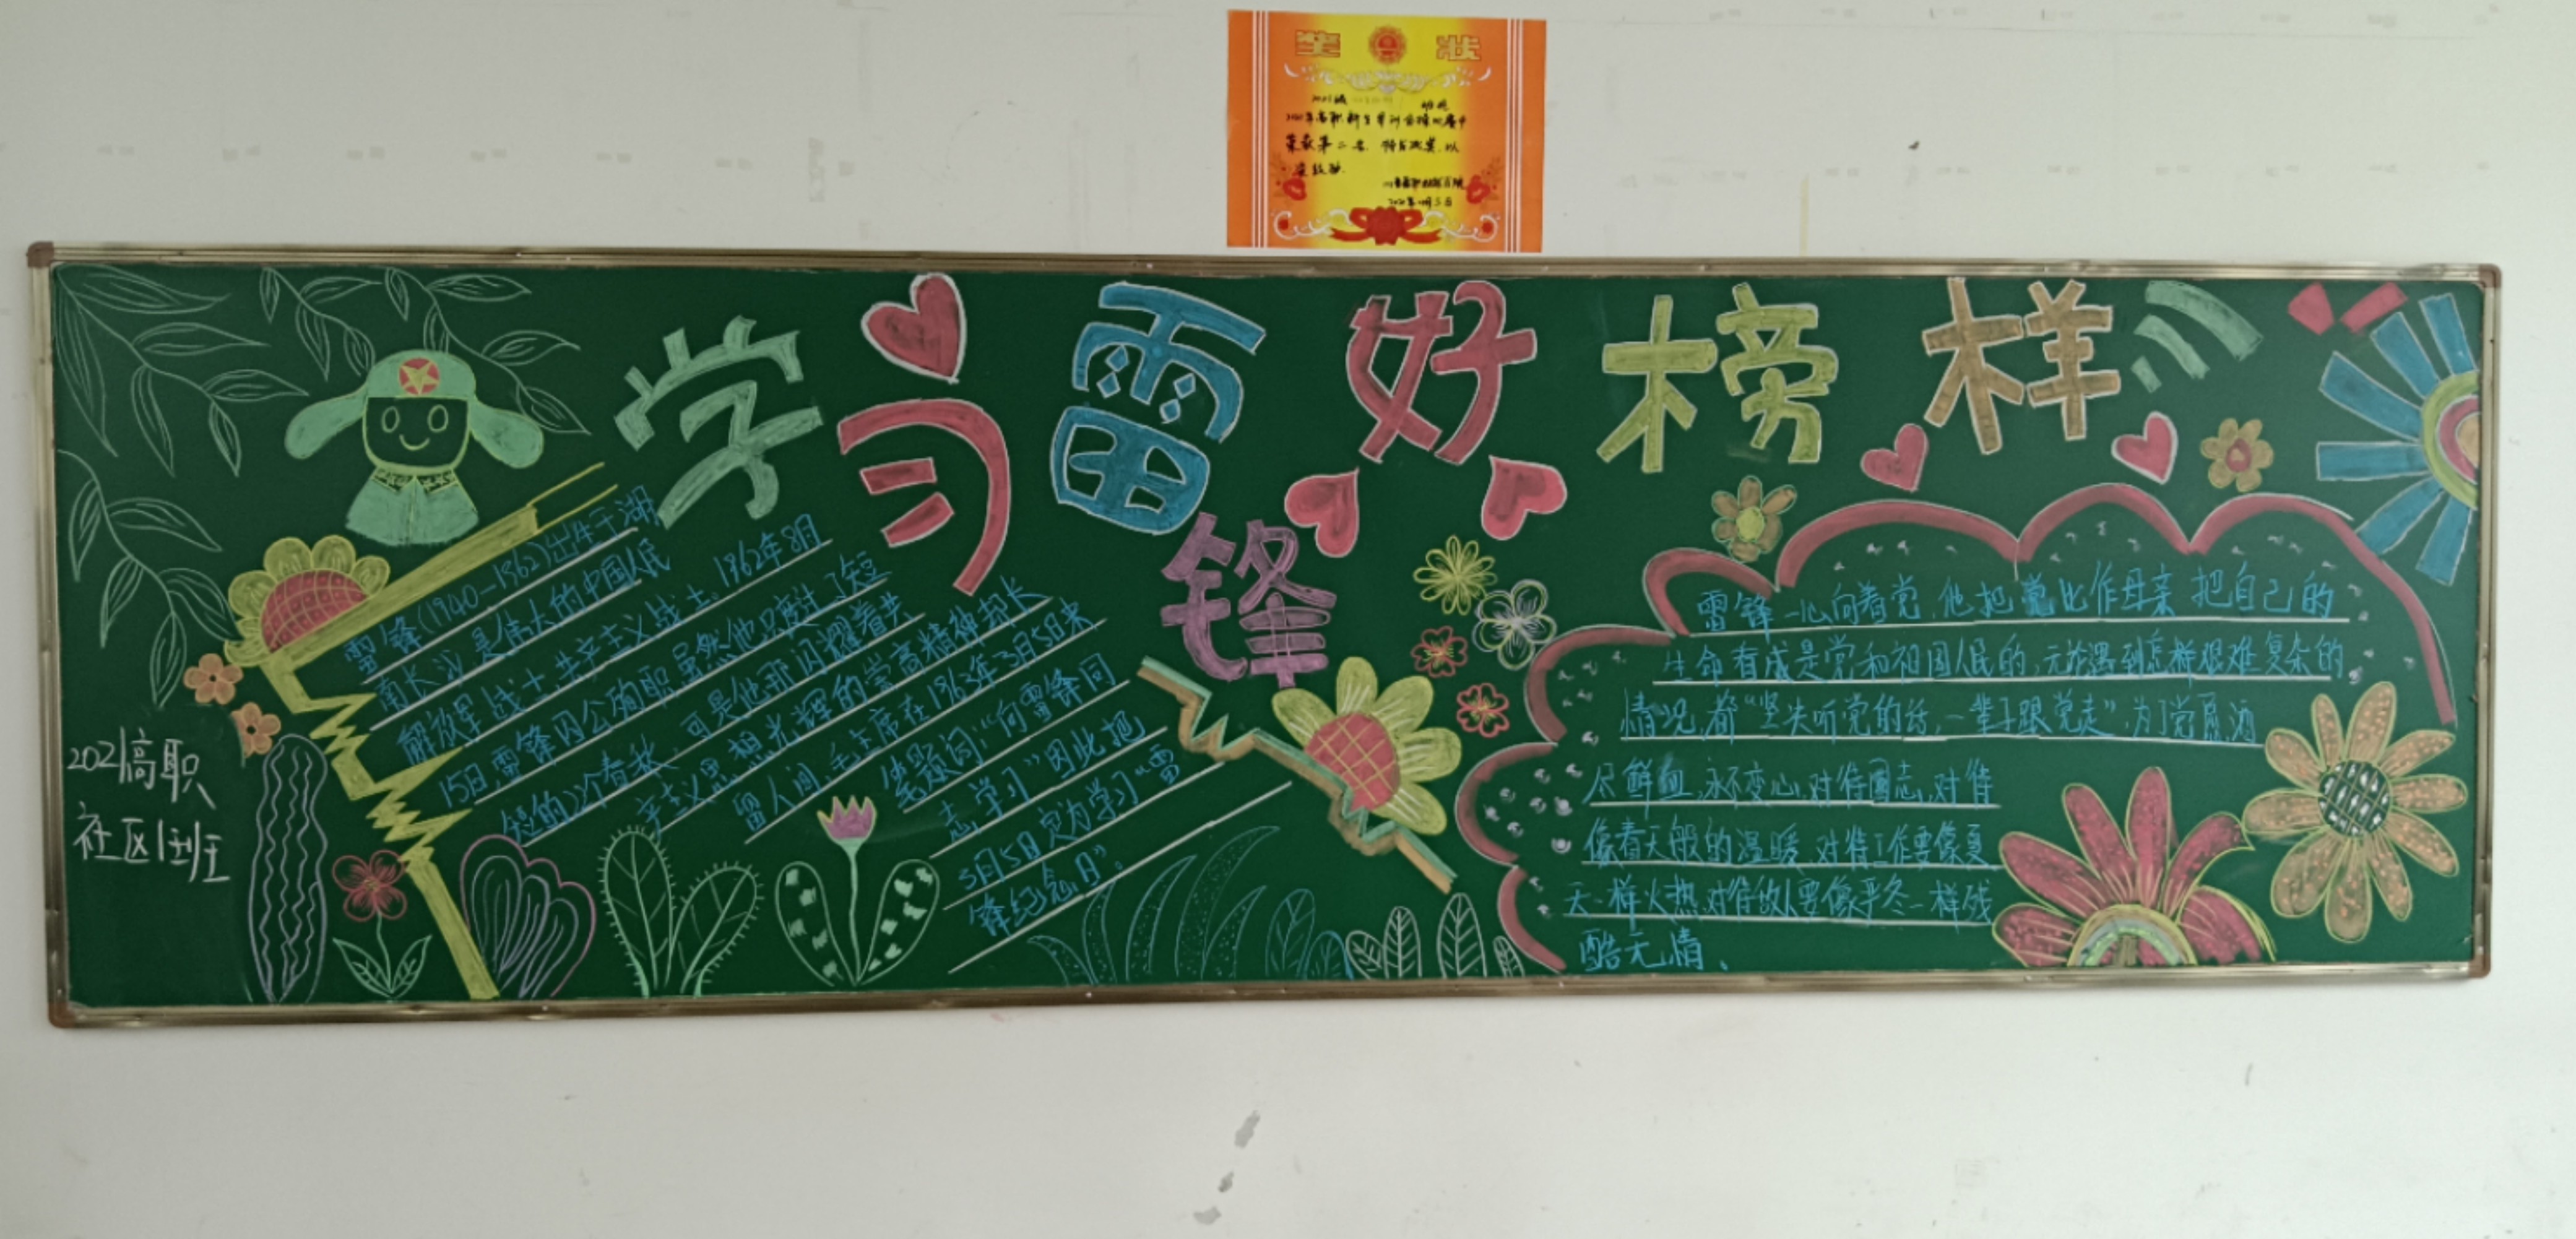 奖 状
荣获第二名，特发此奖，以
资鼓励.
学习雷锋好榜样
雷锋(1940—1962)出生于湖
南长沙,是伟大的中国人民
解放军战士,共产主义战士。1962年8月
15日,雷锋因公殉职,虽然他只度过了短
短的22个春秋,可是他那闪耀着共
产主义思想光辉的崇高精神却长
留人间,毛主席在1963年3月5日来
笔题词:"向雷锋同
志学习"因此把
3月5日定为学习"雷
锋纪念日"。
2021高职
社区1班
雷锋一心向着党,他把党比作母亲,把自己的
生命看成是党和祖国人民的,无论遇到怎样艰难复杂的
情况,都"坚决听党的话,一辈子跟党走",为了党愿洒
尽鲜血,永不变心,对待同志,对待
像春天般的温暖,对待工作要像夏
天一样火热,对待敌人要像严冬一样残
酷无情、